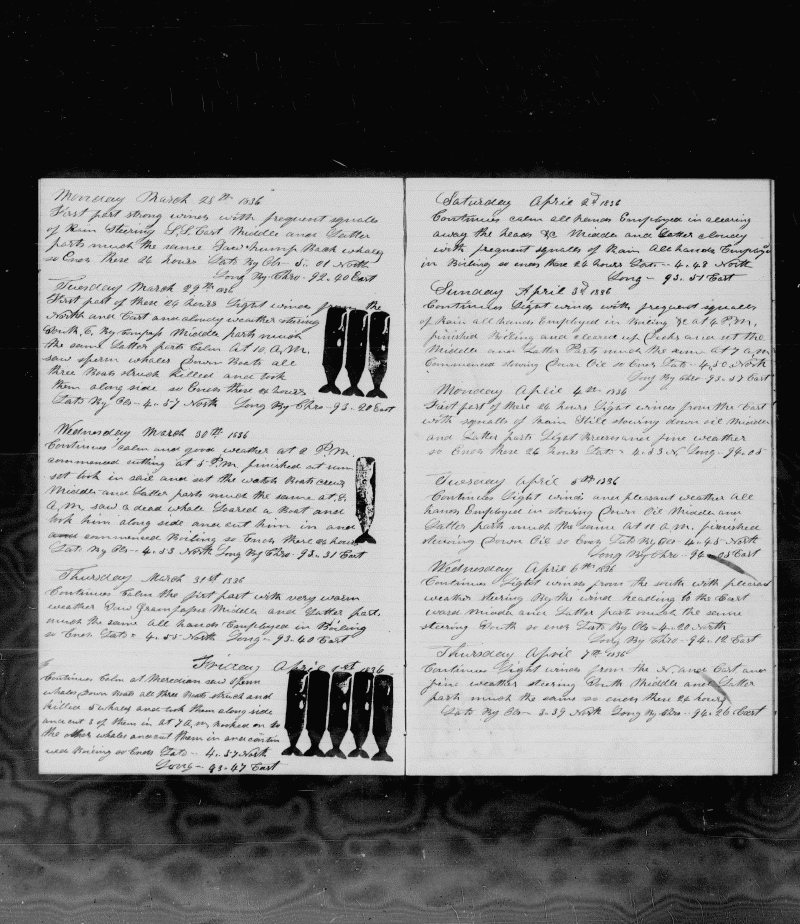 Monday March 28th 1836
First part strong winds with frequent squalls
of Rain Steering S.S. East Middle and Latter
parts much the same Saw Hump Back whales
so Ends these 24 hours Lats By Obs - 5.. 01 North
Long By Chro - 92.. 40 East
Tuesday March 29th 1836
First part of these 24 hours Light winds from the
North and East and cloudy weather steering
South, E, By Compass Middle parts much
the same Latter parts Calm At 10, A, M,
saw sperm whales Down Boats all
three Boats struck killed and took
them along side so Ends these 24 hours
Lats By Obs - 4.. 57 North Long By Chro - 93.. 20 East
Wednesday March 30th 1836
Continues calm and good weather at 2 P.M.
commenced cutting at 5 P.M. finished at sun
set took in sail and set the watch Boats Crews
Middle and Latter parts much the same at 8.
A, M, saw a dead whale Lowered a Boat and
took him along side and cut him in and
and commenced Boiling so Ends these 24 hours
Lats By Obs - 4.. 53 North Long By Chro - 93.. 31 East
Thursday March 31st 1836
Continues Calm the first part with very warm
weather Saw Grampuses Middle and Latter parts
much the same all hands Employed in Boiling
so Ends Lats - 4.. 55 North Long - 93.. 40 East
Friday April 1st 1836
Continues Calm at Meredian saw sperm
whales Down Boats all three Boats struck and
killed 5 whales and took them along side
and cut 3 of them in at 7 A, M, hooked on to
the other whales and cut them in and contin
ued Boiling so Ends Lats - 4.. 57 North
Long - 93.. 47 East
Saturday April 2d 1836
Continues calm all hands Employed in clearing
away the heads &c Middle and Latter cloudy
with frequent squalls of Rain All hands Employed
in Boiling so ends these 24 hours Lats - 4.. 48 North
Long - 93.. 51 East
Sunday April 3d 1836
Continues Light winds with frequent squalls
of Rain all hands Employed in Boiling &c at 4 P, M,
finished Boiling and cleared up Decks and set the
Middle and Latter Parts much the same at 7 A, M
Commenced stowing Down Oil so Ends Lats - 4.. 50 North
Long By Chro - 93.. 57 East
Monday April 4th 1836
First part of these 24 hours Light winds from the East
with squalls of Rain Still stowing down oil Middle
and Latter parts Light Breeses and fine weather
so Ends these 24 hours Lats - 4.. 53 N, Long - 94.. 05
Thursday April 5th 1836
Continues Light winds and pleasant weather All
hands Employed in stowing Down Oil Middle and
Latter parts much the same At 11 A, M, finished
stowing Down Oil so Ends Lats By Obs 4.. 45 North
Long By Chro - 94.. 05 East
Wednesday April 6th 1836
Continues Light winds from the south with pleasant
weather steering By the wind heading to the East
ward Middle and Latter part much the same
steering South so ends Lats By Obs - 4.. 20 North
Long By Chro - 94.. 12 East
Thursday April 7th 1836
Continues Light winds from the N. and East and
fine weather steering South Middle and Latter
parts much the same so ends these 24 hours
Lats By Obs - 3.. 39 North Long By Chro - 94.. 26 East